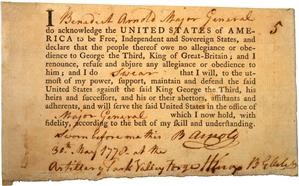 I Benedict Arnold Major General 5
do acknowledge the UNITED STATES of AME-
RICA to be Free, Independent and Sovereign States, and
declare that the people thereof owe no allegiance or obe-
dience to George the Third, King of Great-Britain; and I
renounce, refuse and abjure any allegiance or obedience to
him; and I do Swear that I will, to the ut-
most of my power, support, maintain and defend the said
United States against the said King George the Third, his
heirs and successors, and his or their abettors, assistants and
adherents, and will serve the said United States in the office of
Major General which I now hold, with
fidelity, according to the best of my skill and understanding.
Sworn before me this B Arnold
30th May 1778 at the
Artillery Park Valley Forge HKnox B G Artillery